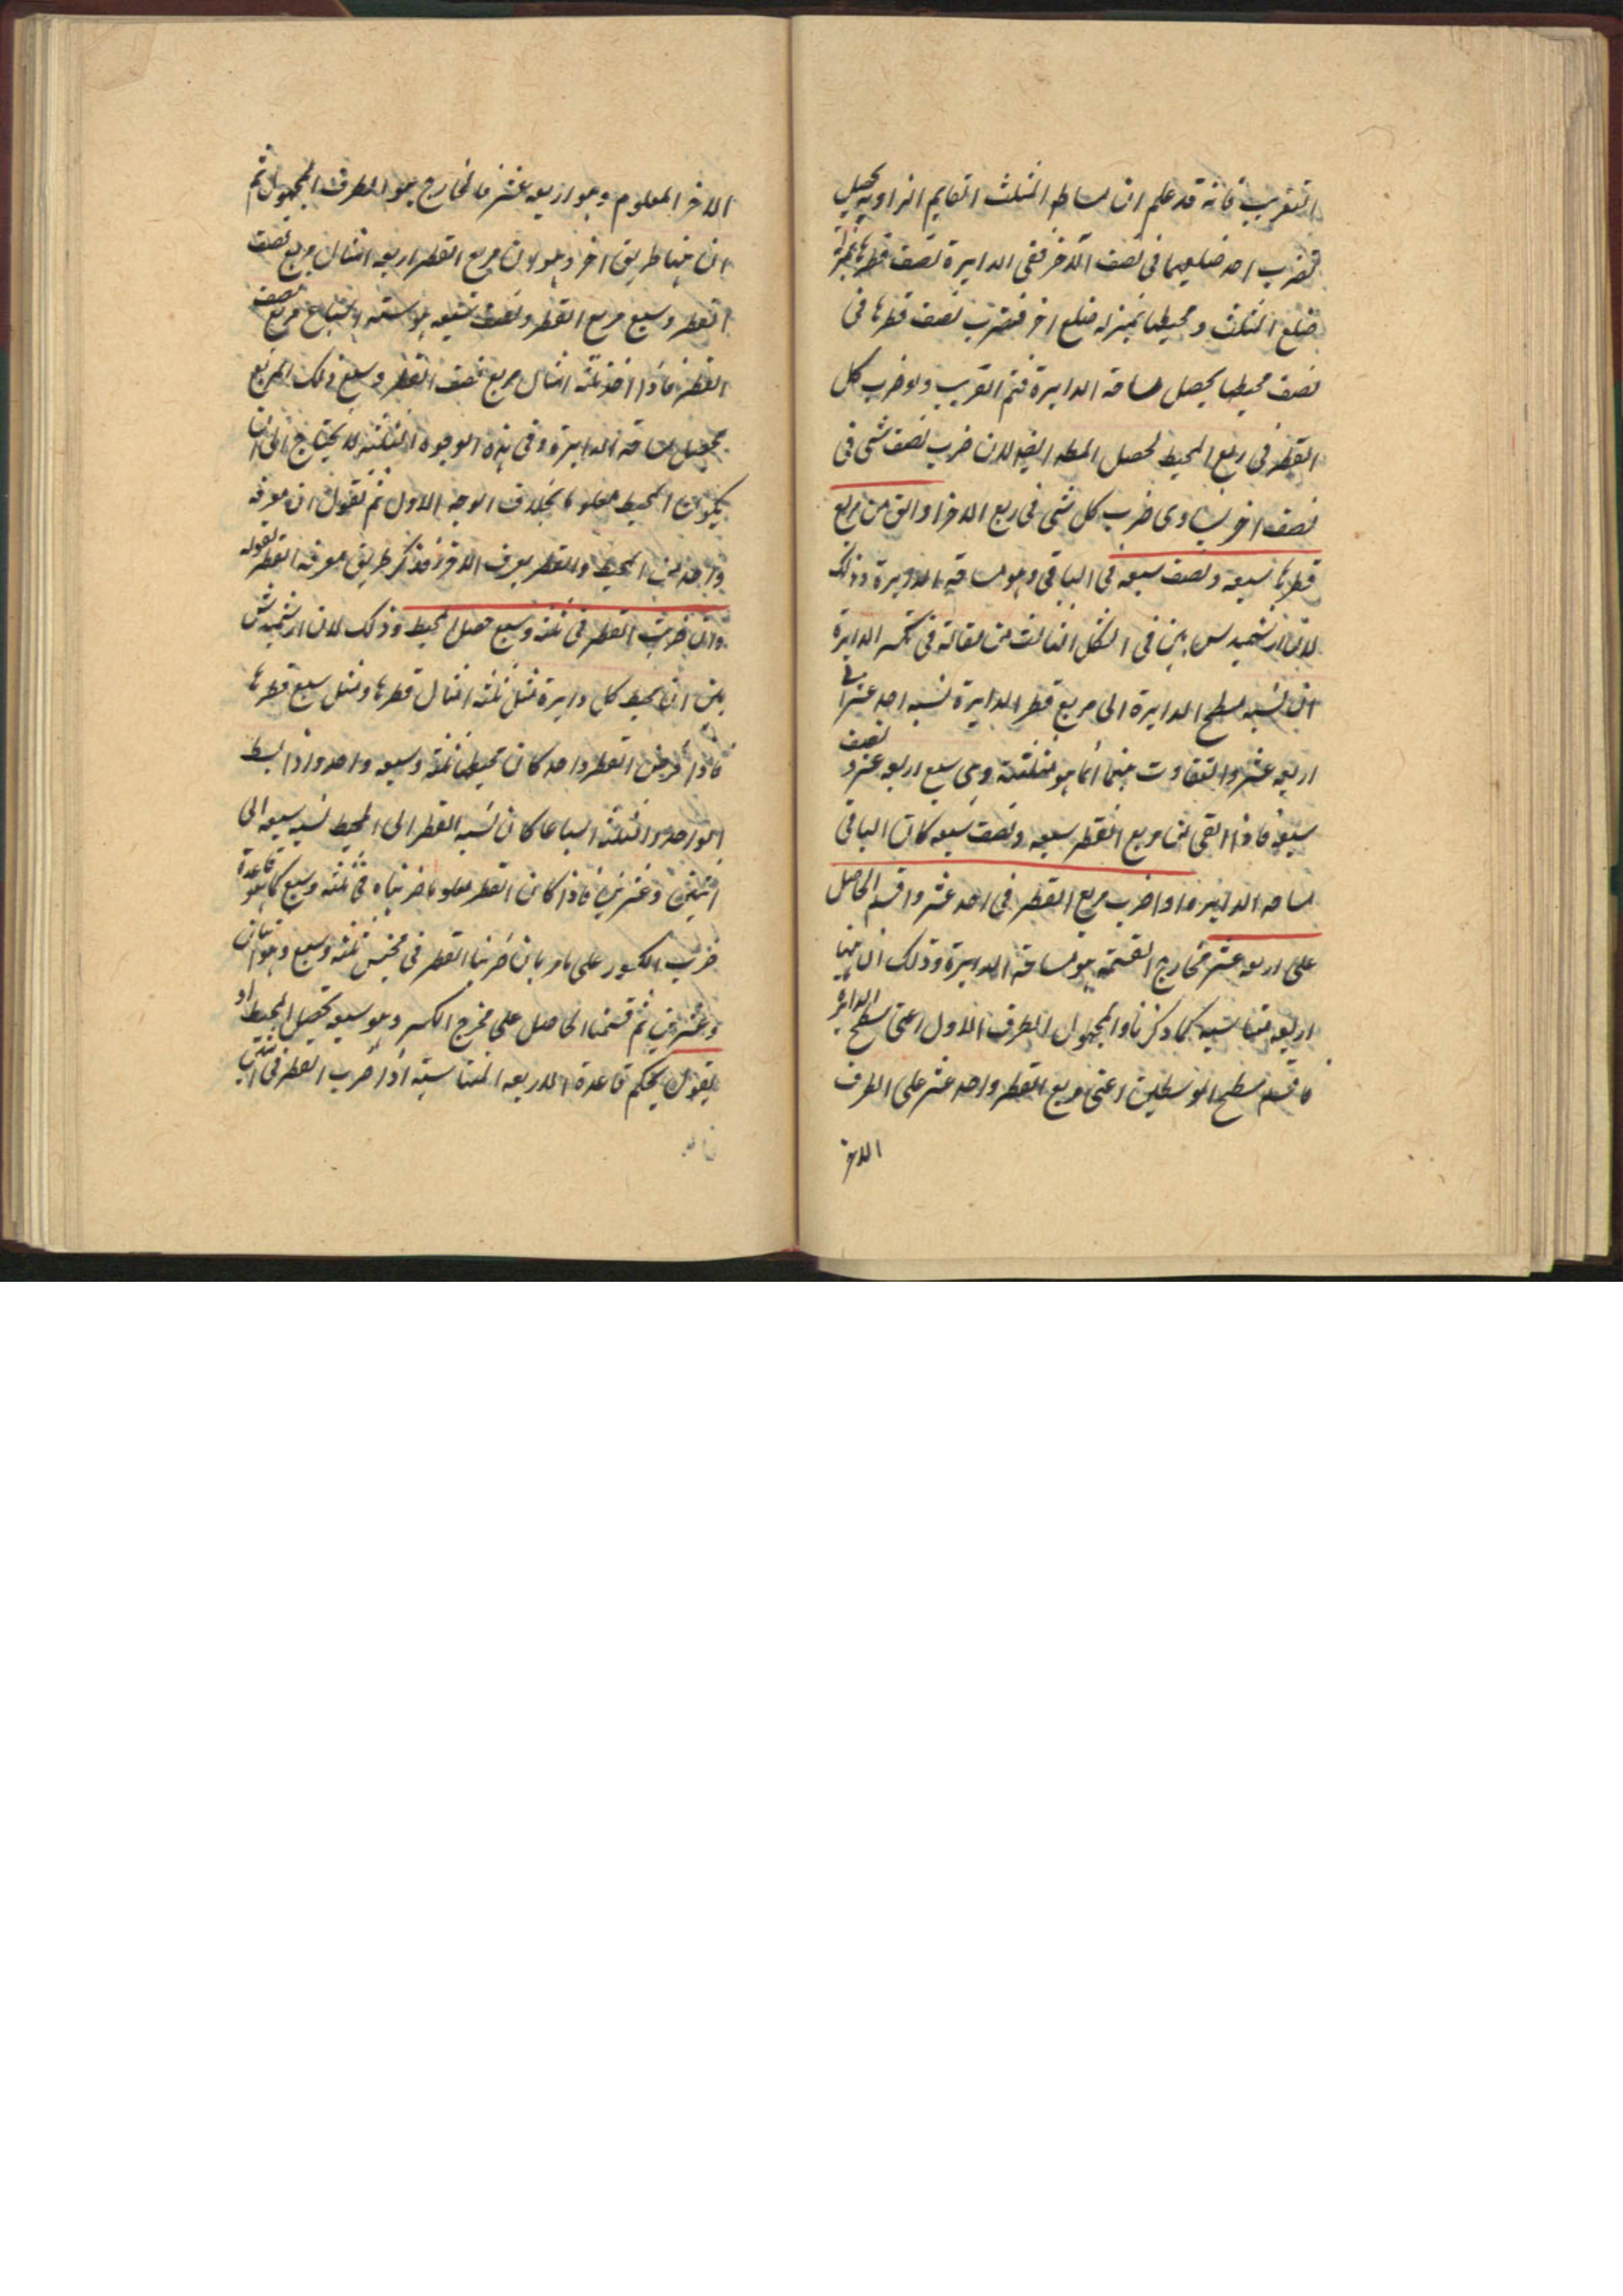 التقريب فانه قد علم ان مساحه المثلث القايم الزاويه يحصل
بضرب احد ضلعيها فى نصف الآخر ففى الدايرة نصف قطرها بمنزلة
ضلع المثلث و محيطها بمنزله ضلع اخر فنضرب نصف قطرها فى
نصف محيطها يحصل مساحة الدايرة فتم التقريب ولو ضرب كل
القطر فى ربع المحيط لحصل المط ايضا لان ضرب نصف شى فى
نصف اخر يساوى ضرب كل شى فى ربع الاخر او الق من مربع
قطرها سبعه و نصف سبعه فى الباقى وهو مساحة الدايرة وذلك
لان ارشميدس بين فى الشكل الثالث من مقالة فى تكسير الدايرة
ان نسبه سطح الدايرة الى مربع قطر الدايرة نسبه احد عشر الى
اربعه عشر والتفاوت بينهما انما هو بثلثة وهى سبع اربعه عشر و نصف
سبعه فاذا القى من مربع القطر سبعه و نصف سبعه كان الباقى
مساحه الدايرة او اضرب مربع القطر فى احد عشر واقسم الحاصل
على اربعه عشر فخارج القسمة هو مساحة الدايرة وذلك ان هنا
اربعه متناسبه كما ذكرنا والمجهول الطرف الاول اعنى سطح الدايرة
فاقسم سطح الوسطين اعنى مربع القطر واحد عشر على الطرف
الاخر
الاخر المعلوم وهو اربعه عشر فالخارج هو الطرف المجهول ثم
ان هنا طريق اخر وهو لان مربع القطر اربعه امثال مربع نصف
القطر وسبع مربع القطر ونصف سبعه هو ستة اسباع مربع نصف
القطر فاذا اخذ ثلثة امثال مربع نصف القطر وسبع ذلك المربع
يحصل مساحة الدايرة وفى هذه الوجوه الثلثة لا يحتاج الى ان
يكون المحيط معلوما بخلاف الوجه الاول ثم نقول ان معرفة
واحد من المحيط والقطر يعرف الاخر فذكر طريق معرفة القطر بقوله
وان ضربت القطر فى ثلثة وسبع حصل المحيط وذلك لان ارشميدس
بين ان محيط كل دايرة مثل ثلثة امثال قطرها ومثل سبع قطرها
فاذا فرض القطر واحد كان محيطها ثلثة وسبعه واحد واذا بسط
الواحد والثلثة اسباعا كان نسبه القطر الى المحيط نسبه سبعه الى
اثنين وعشرين فاذا كان القطر معلوما ضربناه فى ثلثة وسبع كما هو قاعدة
ضرب الكسور على ما مر بان ضربنا القطر فى مجنس ثلثة وسبع وهو اثنان
وعشرين ثم قسمنا الحاصل على مخرج الكسر وهو سبعه يحصل المحيط او
نقول بحكم قاعدة الاربعه المتناسبة اذا ضرب القطر فى اثنين